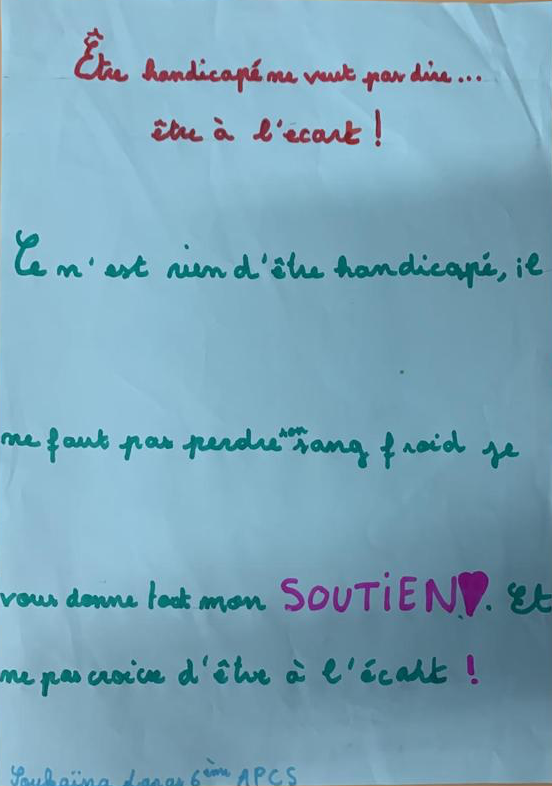 Être handicapé ne veut pas dire...
être à l'écart !
Ce n'est rien d'être handicapé, il
ne faut pas perdre son sang froid je
vous donne tout mon SOUTiEN♥. Et
ne pas croire d'être à l'écart !
6ème APCS